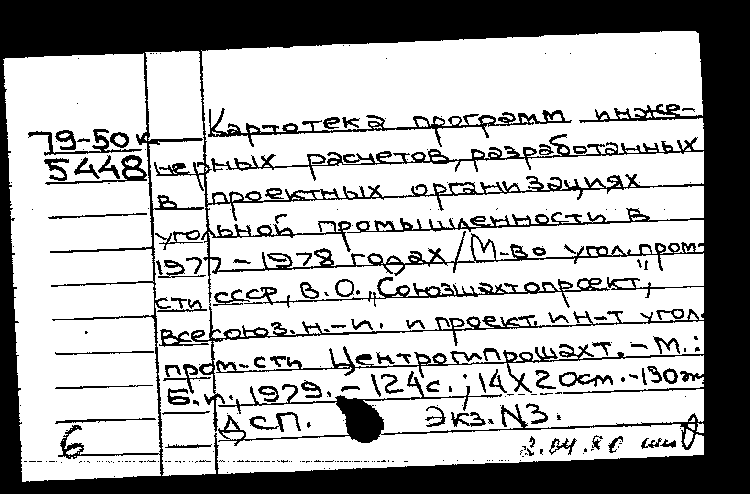 79-50к
5448
Картотека программ инже-
нерных расчетов, разработанных
в проектных организациях
угольной промышленности в
1977-1978 годах/М-во угол.пром-
сти СССР, В.О. „Союзшахтопроект",
Всесоюз.н.-и. и проект. ин-т угол.
пром-сти Центрогипрошахт.-М.:
Б.и., 1979. - 124с.; 14х20см.-130эк
ДСП. Экз.N3.
6
2.04.80